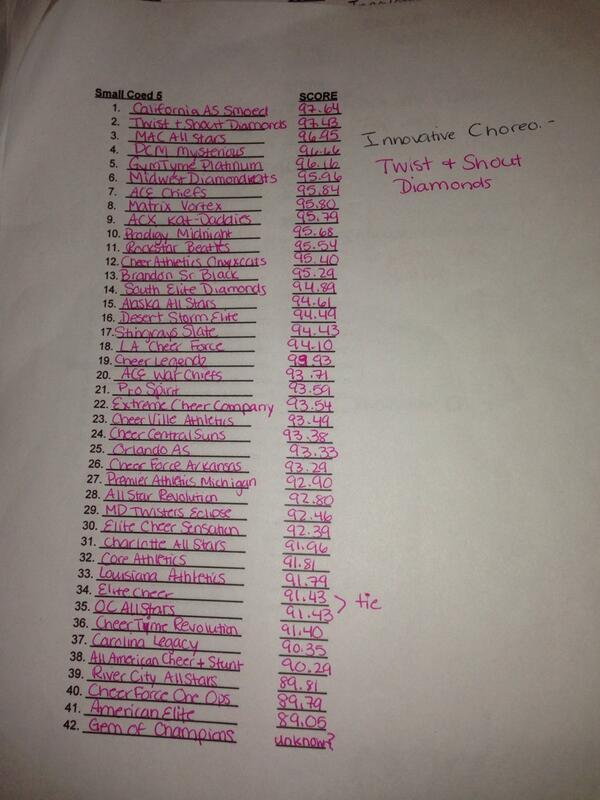 Small Coed 5 SCORE
1. California AS Smoed 97.64
2. Twist + Shout Diamonds 97.43
3. MAC All Stars 96.95
4. PCM Mysterious 96.66
5. GymTyme Platinum 96.16
6. Midwest Diamondcats 95.96
7. ACE Chiefs 95.84
8. Matrix Vortex 95.80
9. ACX Kat-Daddies 95.79
10. Prodigy Midnight 95.68
11. Rockstar Beatles 95.54
12. Cheer Athletics Onyxcats 95.40
13. Brandon Sr Black 95.29
14. South Elite Diamonds 94.89
15. Alaska All Stars 94.61
16. Desert Storm Elite 94.49
17. Stingrays Slate 94.43
18. LA Cheer Force 94.10
19. Cheer Legendz 93.93
20. ACE War Chiefs 93.71
21. Pro Spirit 93.59
22. Extreme Cheer Company 93.54
23. CheerVille Athletics 93.49
24. Cheer Central Suns 93.38
25. Orlando AS 93.33
26. Cheer Force Arkansas 93.29
27. Premier Athletics Michigan 92.90
28. All Star Revolution 92.80
29. MD Twisters Eclipse 92.46
30. Elite Cheer Sensation 92.39
31. Charlotte All Stars 91.96
32. Core Athletics 91.81
33. Louisiana Athletics 91.79
34. Elite Cheer 91.43
35. OC All Stars 91.43
tie
36. Cheer Tyme Revolution 91.40
37. Carolina Legacy 90.35
38. All American Cheer + Stunt 90.29
39. River City All Stars 89.81
40. Cheer Force One Ops 89.79
41. American Elite 89.05
42. Gem of Champions unknow?
Innovative Choreo. -
Twist + Shout
Diamonds